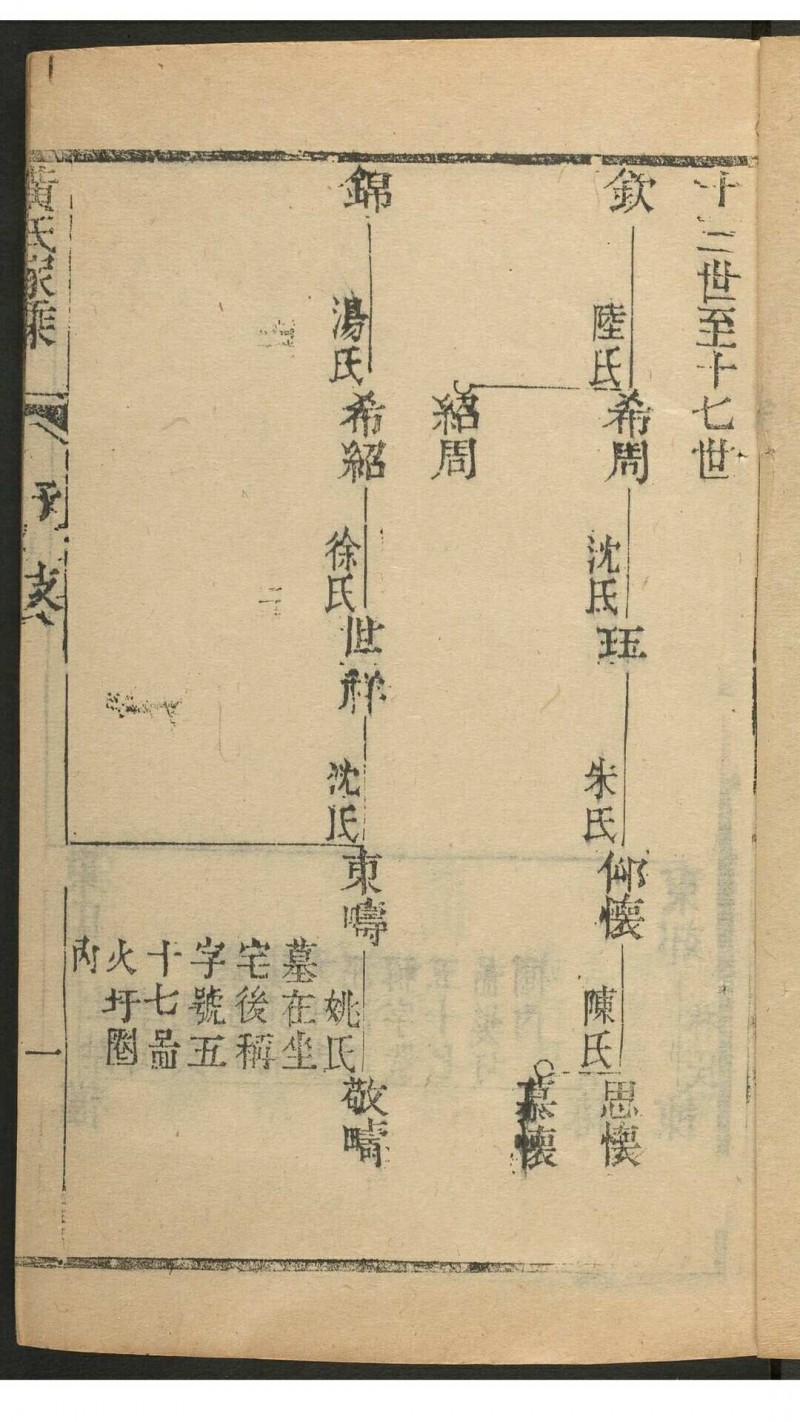 十三世至十七世
欽
陸氏
希周
沈氏
珏
朱氏
仰懷
陳氏
思懷
慕懷
紹周
錦
湯氏
希紹
徐氏
世祥
沈氏
東疇
姚氏
敬疇
墓在坐
宅後稱
字號五
十七啚
火圩圈
內
黃氏家乘
支
一